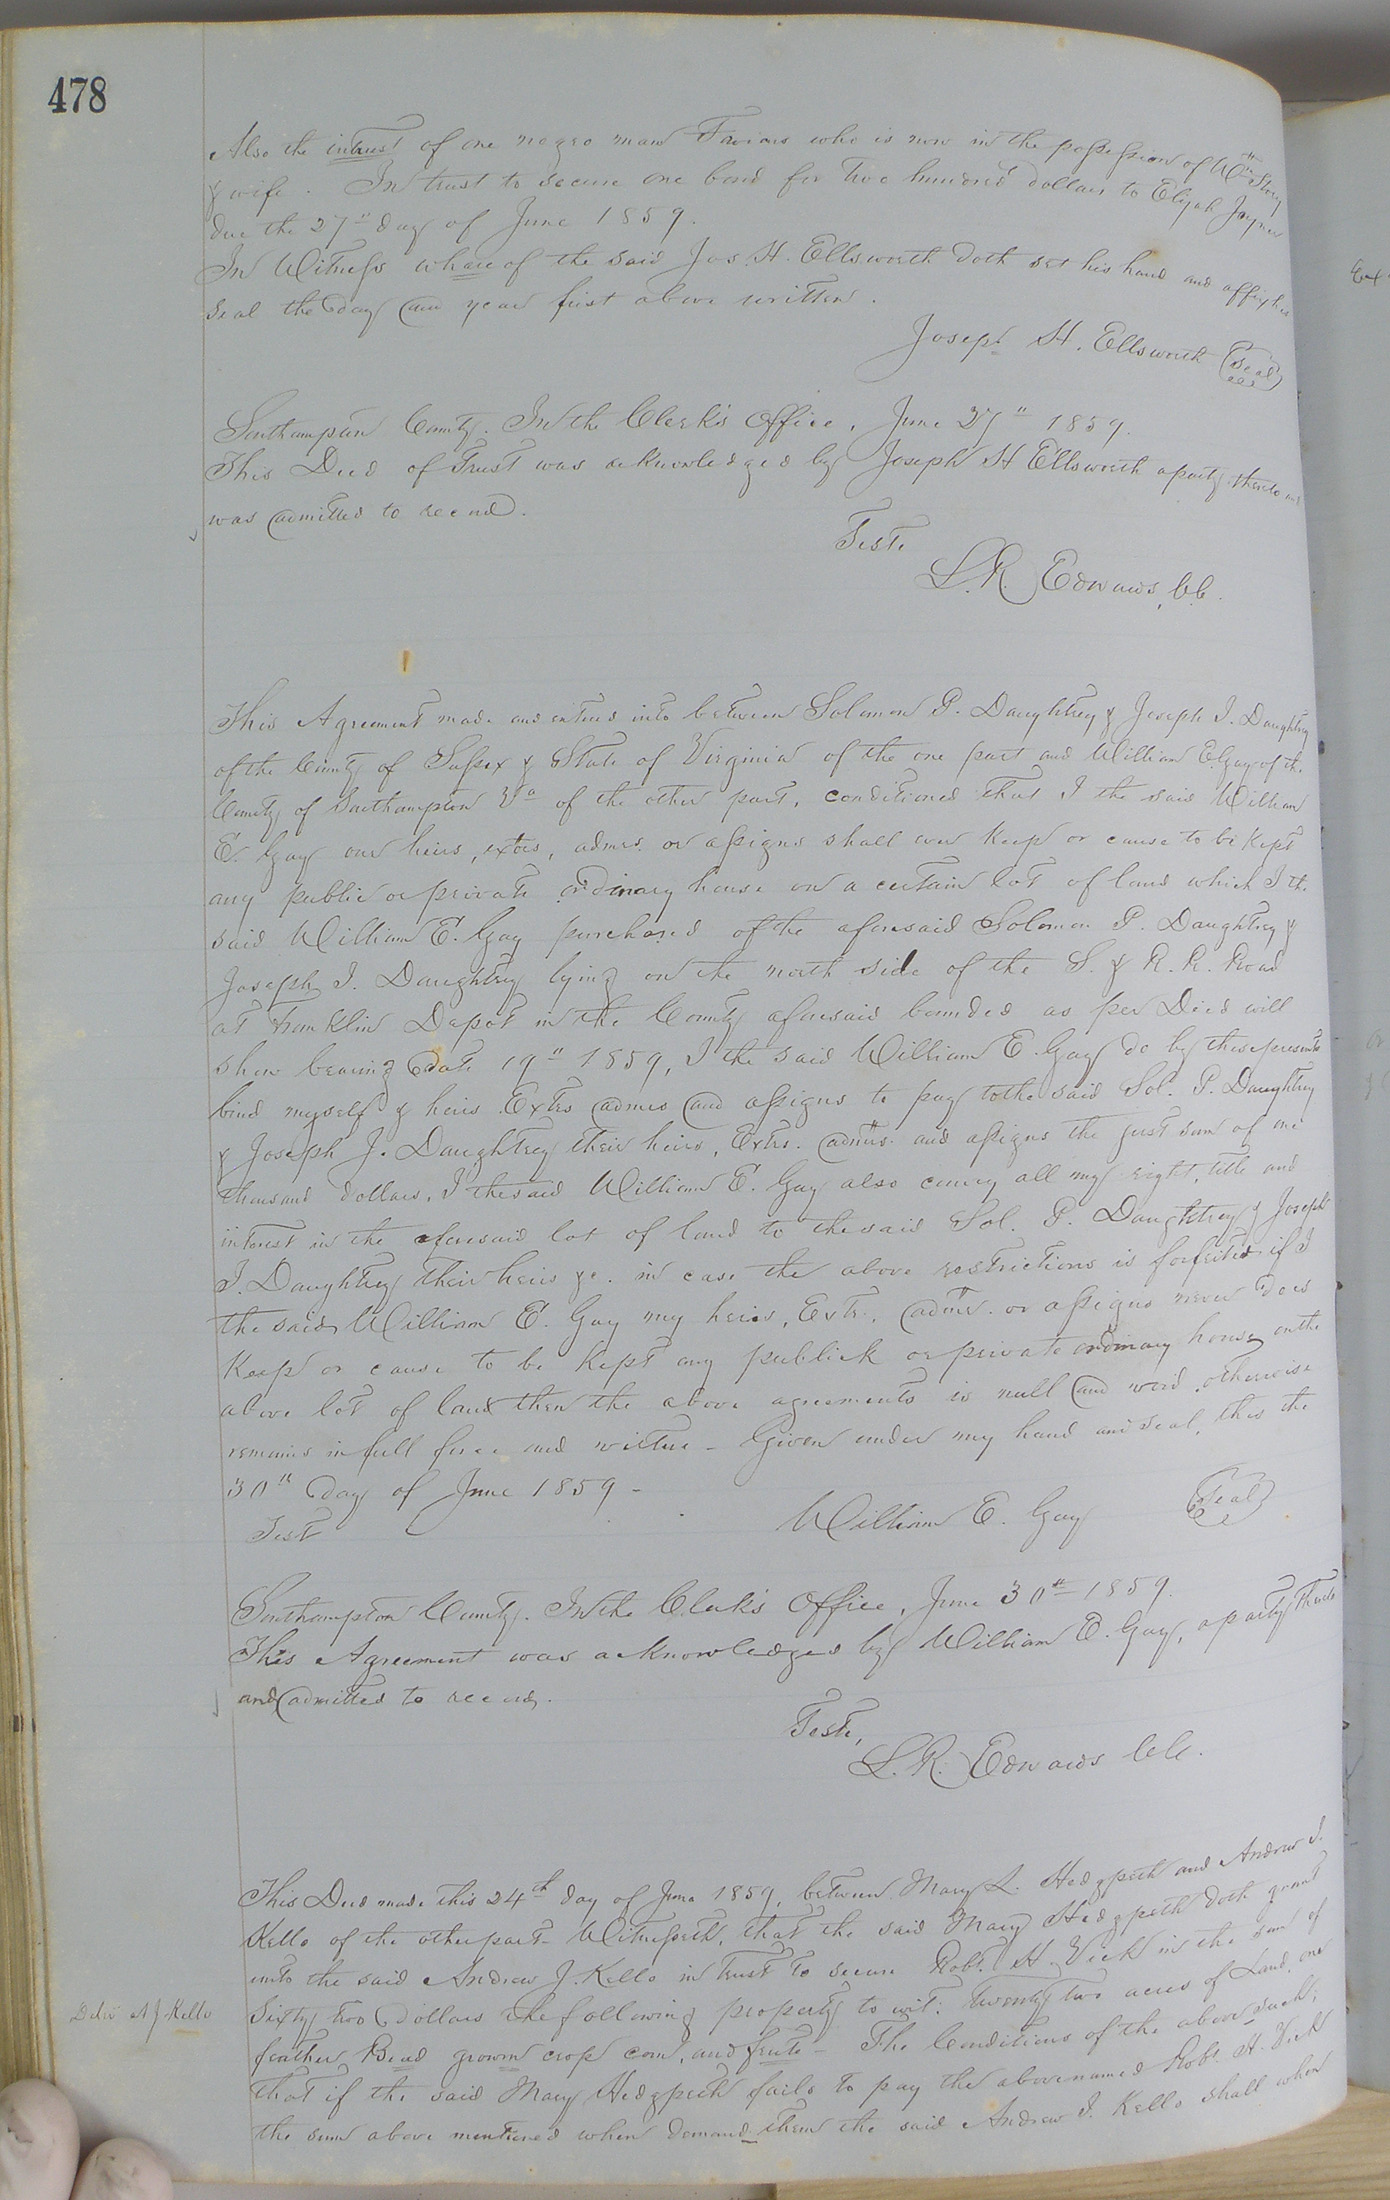 478
Also the intrust of one negro man who is now in the possession of Wm Story
& wife. In trust to secure one bond for two hundred dollars to Elijah Joyner
due the 27" day of June 1859.
In Witness whareof the said Jos. H. Ellsworth doth set his hand and affix his
seal the day and year first above written.
Joseph H. Ellsworth (Seal)
Southampton County. In the Clerk's Office, June 27" 1859.
This Deed of Trust was acknowledged by Joseph H Ellsworth a party thereto and
was admitted to record.
Teste
L. R. Edwards, C.C.
This Agreement made and entered into between Solomon P. Daughtrey & Joseph J. Daughtrey
of the County of Sussex & State of Virginia of the one part and William E. Gay of the
County of Southampton Va of the other part, conditioned that I the said William
E. Gay our heirs, extrs, admrs. or assigns shall ever keep or cause to be kept
any public or private ordinary house on a certain lot of land which I the
said William E. Gay purchased of the aforesaid Solomon P. Daughtrey &
Joseph J. Daughtrey lying on the north side of the S. & R. R. Road
at Franklin Depot in the County aforesaid bounded as per Deed will
show bearing date 19" 1859, I the said William E. Gay do by these presents
bind myself & heirs Extrs admrs and assigns to pay to the said Sol. P. Daughtrey
& Joseph J. Daughtrey their heirs, Extrs. admrs. and assigns the just sum of one
thousand dollars, I the said William E. Gay also convey all my right, title and
interest in the aforesaid lot of land to the said Sol. P. Daughtrey & Joseph
J. Daughtrey their heirs &c. in case the above restrictions is forfeited if I
the said William E. Gay my heirs, Extr., admr. or assigns never does
keep or cause to be kept any publick or private ordinary house on the
above lot of land then the above agreements is null and void, otherwise
remains in full force and virtue - Given under my hand and seal, this the
30th day of June 1859 -
Test William E. Gay (Seal)
Southampton County. In the Clerk's Office, June 30th 1859.
This Agreement was acknowledged by William E. Gay, a party thereto
and admitted to record.
Teste,
L. R. Edwards C.C.
This Deed made this 24th day of June 1859, between Mary L. Hedgpeth and Andrew J.
Kello of the other part - Witnesseth, that the said Mary Hedgpeth doth grant
unto the said Andrew J. Kello in trust to secure Robt. H. Vick in the sum of
Deld A J Kello
Sixty two dollars the following property to wit: Twenty two acres of Land, one
feather Bead growin crop corn, and frute - The Conditions of the above such,
that if the said Mary Hedgpeth fails to pay the above named Robt. H. Vick
the sum above mentioned when demand then the said Andrew J. Kello shall when